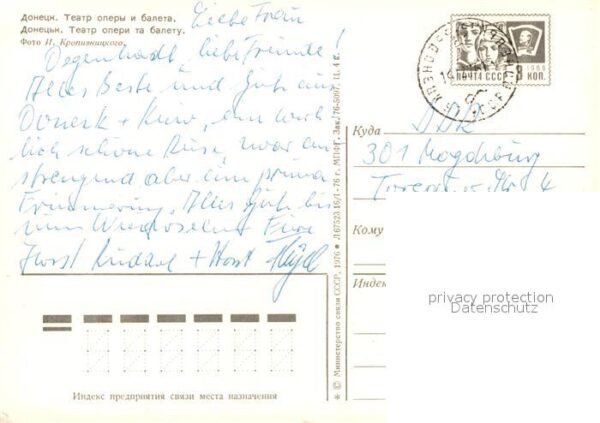 Донецк. Театр оперы и балета.
Донецьк. Театр опери та балету.
Фото И. Кропивницкого.
Liebe Frau
Degenhardt, liebe Freunde!
Alles Beste und Gute aus
Donezk + Kiew, eine wirk
lich schöne Reise, war an
strengend aber eine prima
Erinnerung. Alles Gute bis
zum Wiedersehen Eure
Horst + Horst
ПОЧТА СССР 1966
3 КОП.
Куда DDR
301 Magdeburg
Кому
Индекс
privacy protection
Datenschutz
Индекс предприятия связи места назначения
© Министерство связи СССР, 1976 ★ Л 67523 15/I - 76 г. МПФГ. Зак. 76-5007. Ц. 4 к.